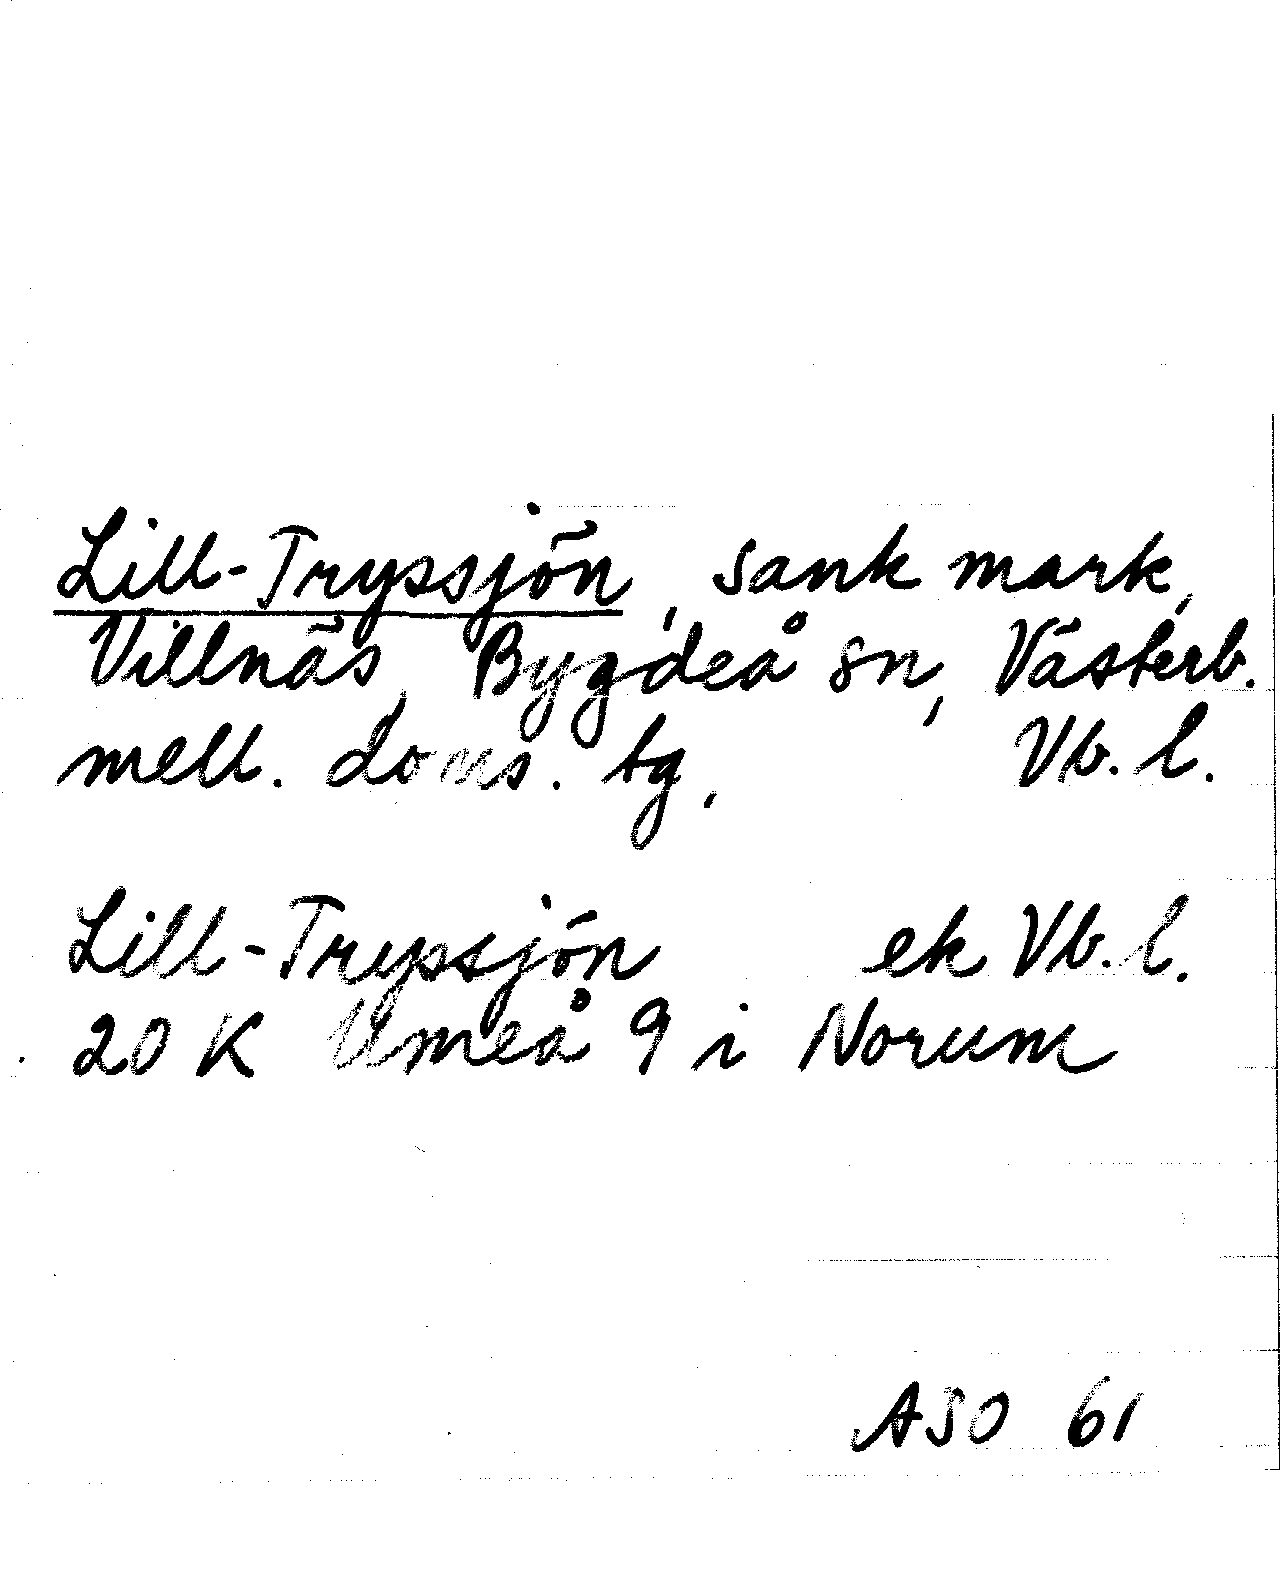 Lill-Tryssjön, sank mark,
Villnäs, Bygdeå sn, Västerb.
mell. doms. tg, Vb. l.
Lill-Tryssjön ek Vb. l.
20 K Umeå 9 i Norum
ASO 61